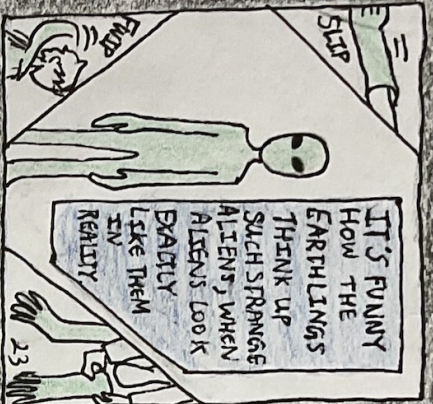 SLIP
FWIP
IT'S FUNNY
HOW THE
EARTHLINGS
THINK UP
SUCH STRANGE
ALIENS, WHEN
ALIENS LOOK
EXACTLY
LIKE THEM
IN
REALITY
23